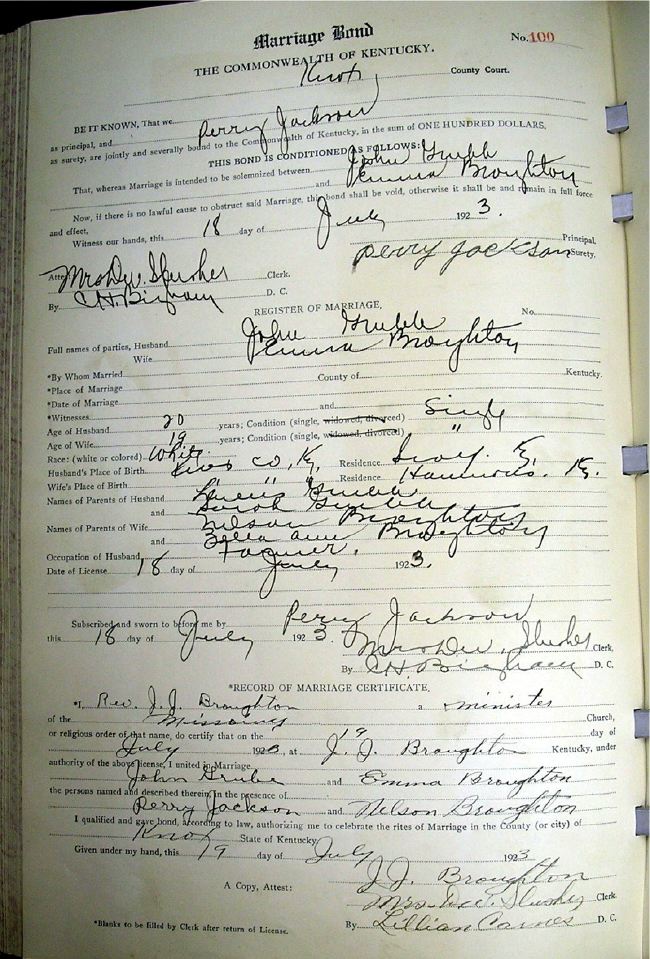 Marriage Bond
No. 100
THE COMMONWEALTH OF KENTUCKY.
Knox County Court.
BE IT KNOWN, That we
as principal, and Perry Jackson
as surety, are jointly and severally bound to the Commonwealth of Kentucky, in the sum of ONE HUNDRED DOLLARS.
THIS BOND IS CONDITIONED AS FOLLOWS:
That, whereas Marriage is intended to be solemnized between John Grubb
and Emma Broughton
Now, if there is no lawful cause to obstruct said Marriage, this bond shall be void, otherwise it shall be and remain in full force
and effect,
Witness our hands, this 18 day of July 1923.
Principal.
Perry Jackson Surety.
Attest Mrs Dew. Slusher Clerk.
By C H. Bingham D. C.
REGISTER OF MARRIAGE.
No.
Full names of parties, Husband John Grubb
Wife Emma Broughton
*By Whom Married
*Place of Marriage County of Kentucky.
*Date of Marriage
*Witnesses and
Age of Husband 20 years; Condition (single, widowed, divorced) Single
Age of Wife 19 years; Condition (single, widowed, divorced) "
Race: (white or colored) White
Husband's Place of Birth Knox Co, Ky, Residence Ky,
Wife's Place of Birth " " " Residence Ky.
Names of Parents of Husband Grubb
and Sarah Grubb
Names of Parents of Wife Nelson Broughton
and Ann Broughton
Occupation of Husband Farmer.
Date of License 18 day of July 1923.
Subscribed and sworn to before me by Perry Jackson
this 18 day of July 1923. Mrs Dew. Slusher Clerk.
By C H. Bingham D. C.
*RECORD OF MARRIAGE CERTIFICATE.
*I, Rev. J. J. Broughton a minister
of the Church,
or religious order of that name, do certify that on the 19 day of
July 1923, at J. J. Broughton Kentucky, under
authority of the above license, I united in Marriage
John Grubb and Emma Broughton
the persons named and described therein, in the presence of
Perry Jackson and Nelson Broughton
I qualified and gave bond, according to law, authorizing me to celebrate the rites of Marriage in the County (or city) of
Knox State of Kentucky
Given under my hand, this 19 day of July 1923
J. J. Broughton
A Copy, Attest: Mrs. Dew. Slusher Clerk
*Blanks to be filled by Clerk after return of License.
By Lillian Carnes D. C.